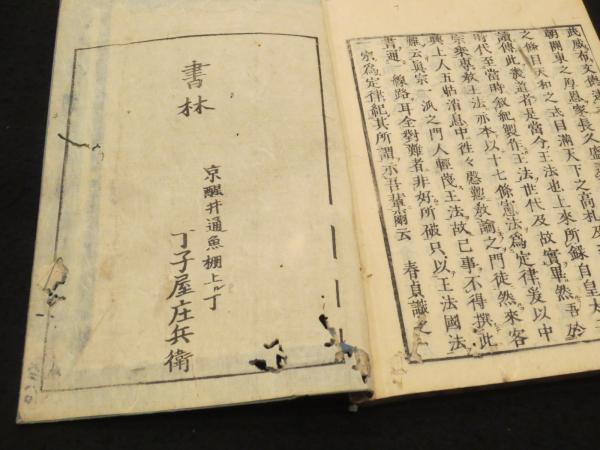 武威布文德
朝關東之厚恩家長久盛
之條目天和之式目滿天下之高札及
讀傳此義道者是當今王法也上來所錄自皇太
時代至當時叙紀製作王法世代及故實畢然吾於
宗來專敎王法亦本以十七條憲法爲定律爰以中
興上人五帖消息中往々慇懃敎諭之門徒然來客
難云眞宗一派之門人輕蔑王法故已事不得撰此
書通一線路耳全對難者非好所破只以王法國法
宗爲定律紀其所謂示吾輩爾云
春貞識之
書林
京醒井通魚棚上ル丁
丁子屋庄兵衛